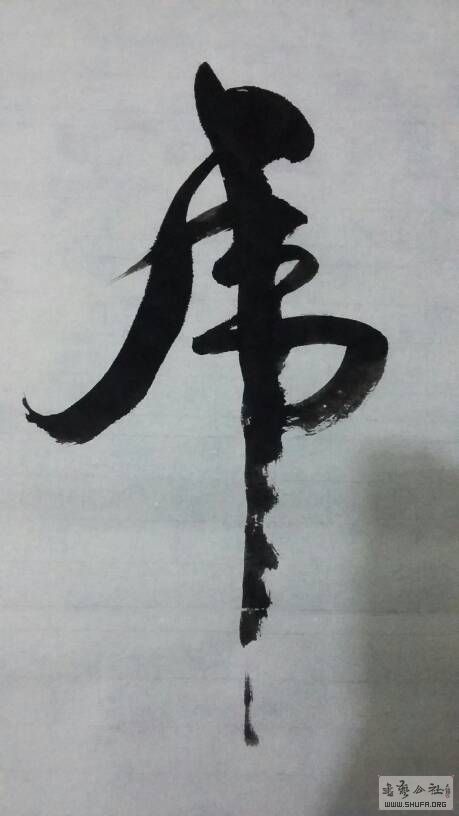 虎
書藝公社
WWW.SHUFA.ORG